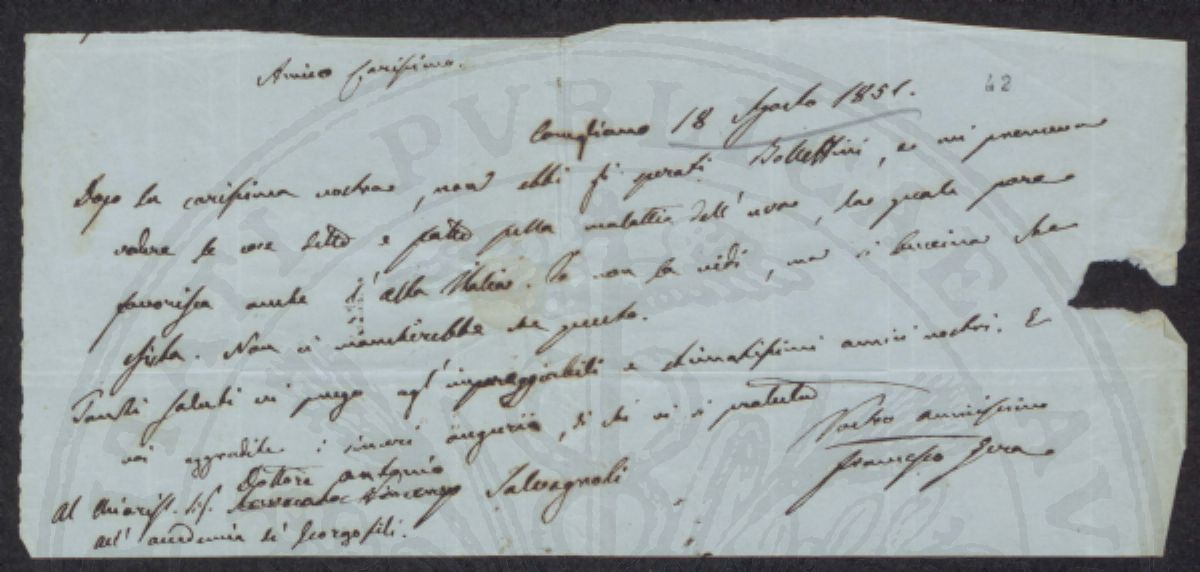 Amico Carissimo.
42
Conegliano 18 Agosto 1851.
Dopo la carissima vostra, non ebbi gli sperati Bollettini, e mi premeva
vedere le cose dette e fatte sulla malattia dell'uva, la quale pare
favorisca anche l'alta Italia. Io non la vidi, ma si buccina che
esista. Non ci mancherebbe che questo.
Tanti saluti vi prego agl'impareggiabili e stimatissimi amici nostri. E
voi aggradite i sinceri augurii, di chi vi si protesta
Vostro amicissimo
Francesco Gera
Al Chiariss. Sig. Dottore Antonio Salvagnoli
Avvocato Vincenzo
all'accademia de' Georgofili.